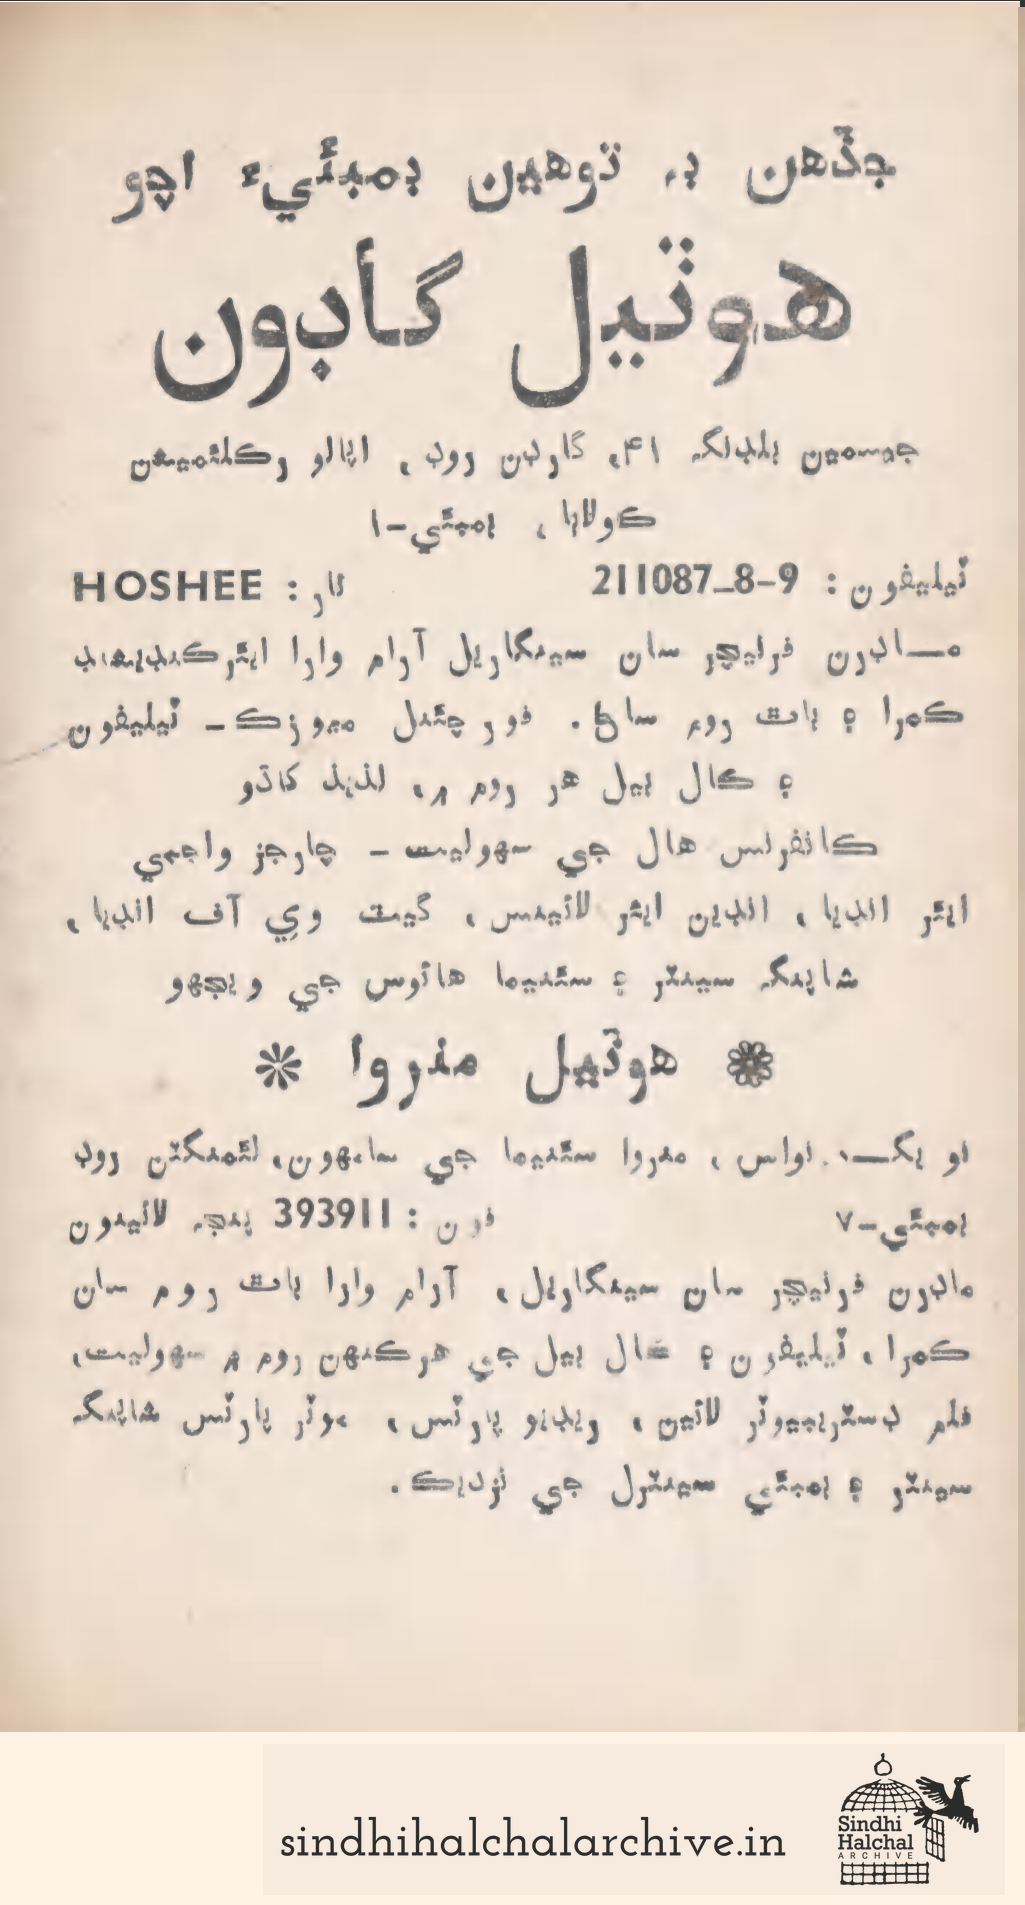 جڏهن به توهين بمبئيءَ اچو
هوٽيل گاڊون
جيسمين بلڊنگ ۴۱، گارڊن روڊ، اپالو رڪلئميشن
ڪولابا، بمبئي-۱
ٽيليفون : 9-8-211087 تار : HOSHEE
ماڊرن فرنيچر سان سينگاريل آرام وارا ايئرڪنڊيشنڊ
ڪمرا ۽ باٿ روم ساڻ. فور چئنل ميوزڪ - ٽيليفون
۽ ڪال بيل هر روم ۾، لذيذ کاڌو
ڪانفرنس هال جي سهوليت - چارجز واجبي
ايئر انڊيا، انڊين ايئر لائينس، گيٽ وي آف انڊيا،
شاپنگ سينٽر ۽ سئنيما هائوس جي ويجهو
هوٽيل منروا
نواس، منروا سئنيما جي سامهون، لئمنگٽن روڊ
بمبئي-۷ فون : 393911 پنج لائينون
ماڊرن فرنيچر سان سينگاريل، آرام وارا باٿ روم سان
ڪمرا، ٽيليفون ۽ ڪال بيل جي هرڪنهن روم ۾ سهوليت،
فلم ڊسٽريبيوٽر لائين، ريڊيو پارٽس، موٽر پارٽس شاپنگ
سينٽر ۽ بمبئي سينٽرل جي نزديڪ.
sindhihalchalarchive.in
Sindhi
Halchal
ARCHIVE